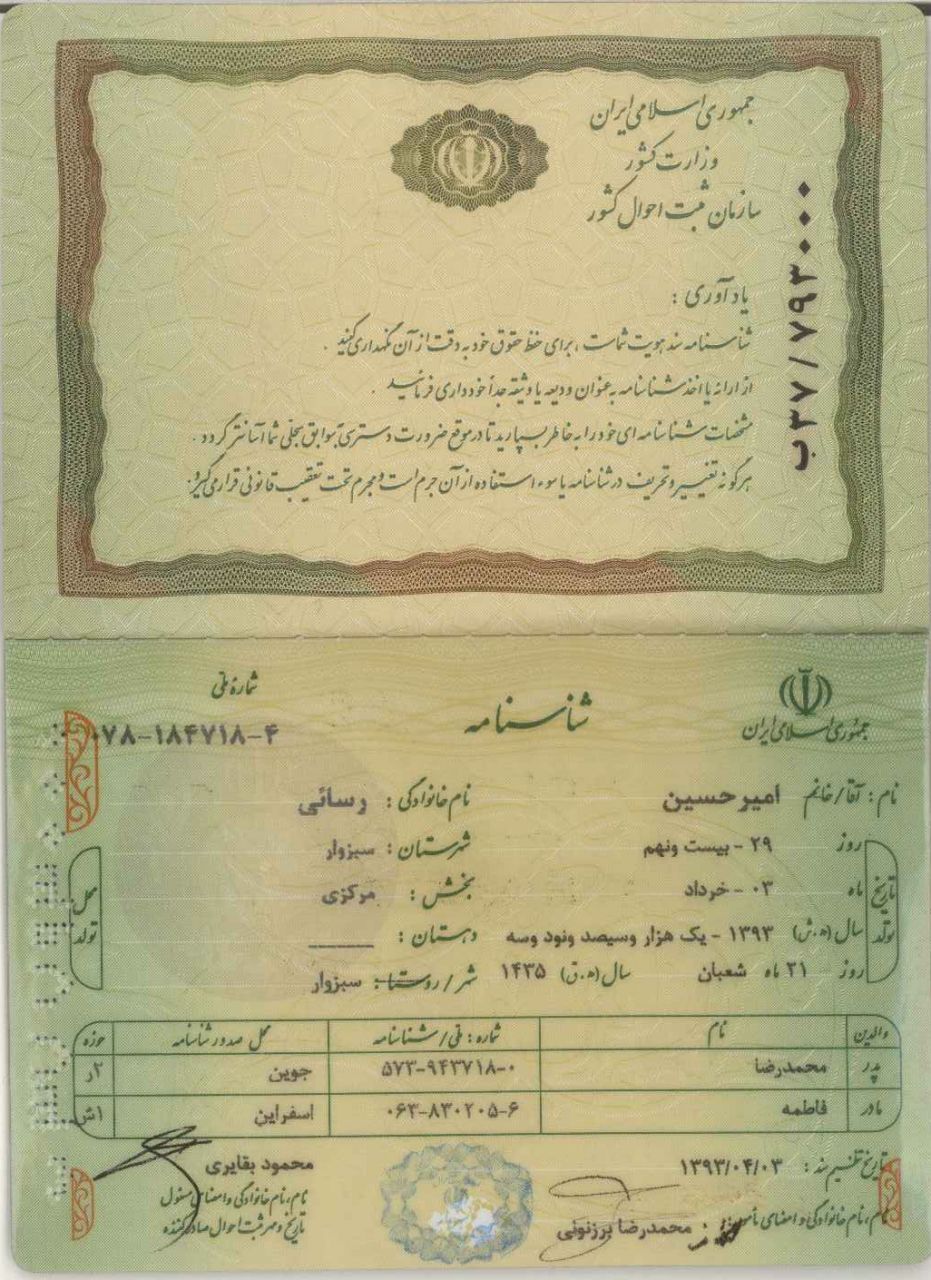 جمهوری اسلامی ایران
وزارت کشور
سازمان ثبت احوال کشور
ب۳۷/۷۹۳۰۰۰
یادآوری :
شناسنامه سند هویت شماست ، برای حفظ حقوق خود به دقت از آن نگهداری کنید .
از ارائه یا اخذ شناسنامه به عنوان ودیعه یا وثیقه جداً خودداری فرمائید .
مشخصات شناسنامه ای خود را به خاطر بسپارید تا در موقع ضرورت دسترسی به سوابق سجلی شما آسانتر گردد .
هرگونه تغییر و تحریف در شناسنامه یا سوء استفاده از آن جرم است و مجرم تحت تعقیب قانونی قرار می گیرد.
جمهوری اسلامی ایران
شناسنامه
شماره ملی
۰۷۸-۱۸۴۷۱۸-۴
نام : آقا/خانم امیرحسین نام خانوادگی : رسائی
تاریخ تولد
روز ۲۹ - بیست ونهم
ماه ۰۳ - خرداد
سال (ه.ش) ۱۳۹۳ - یک هزار وسیصد ونود وسه
روز ۲۱ ماه شعبان سال (ه.ق) ۱۴۳۵
محل تولد
شهرستان : سبزوار
بخش : مرکزی
دهستان : ـــــــ
شهر/روستا : سبزوار
والدین نام شماره : ملی/شناسنامه محل صدور شناسنامه حوزه
پدر محمدرضا ۵۷۳-۹۴۳۷۱۸-۰ جوین ۲ر
مادر فاطمه ۰۶۳-۸۳۰۲۰۵-۶ اسفراین ۱ش
تاریخ تنظیم سند : ۱۳۹۳/۰۴/۰۳
نام،نام خانوادگی و امضای مأمور : محمدرضا برزنونی
محمود بقایری
نام،نام خانوادگی و امضای مسئول
تاریخ و مهر ثبت احوال صادرکننده